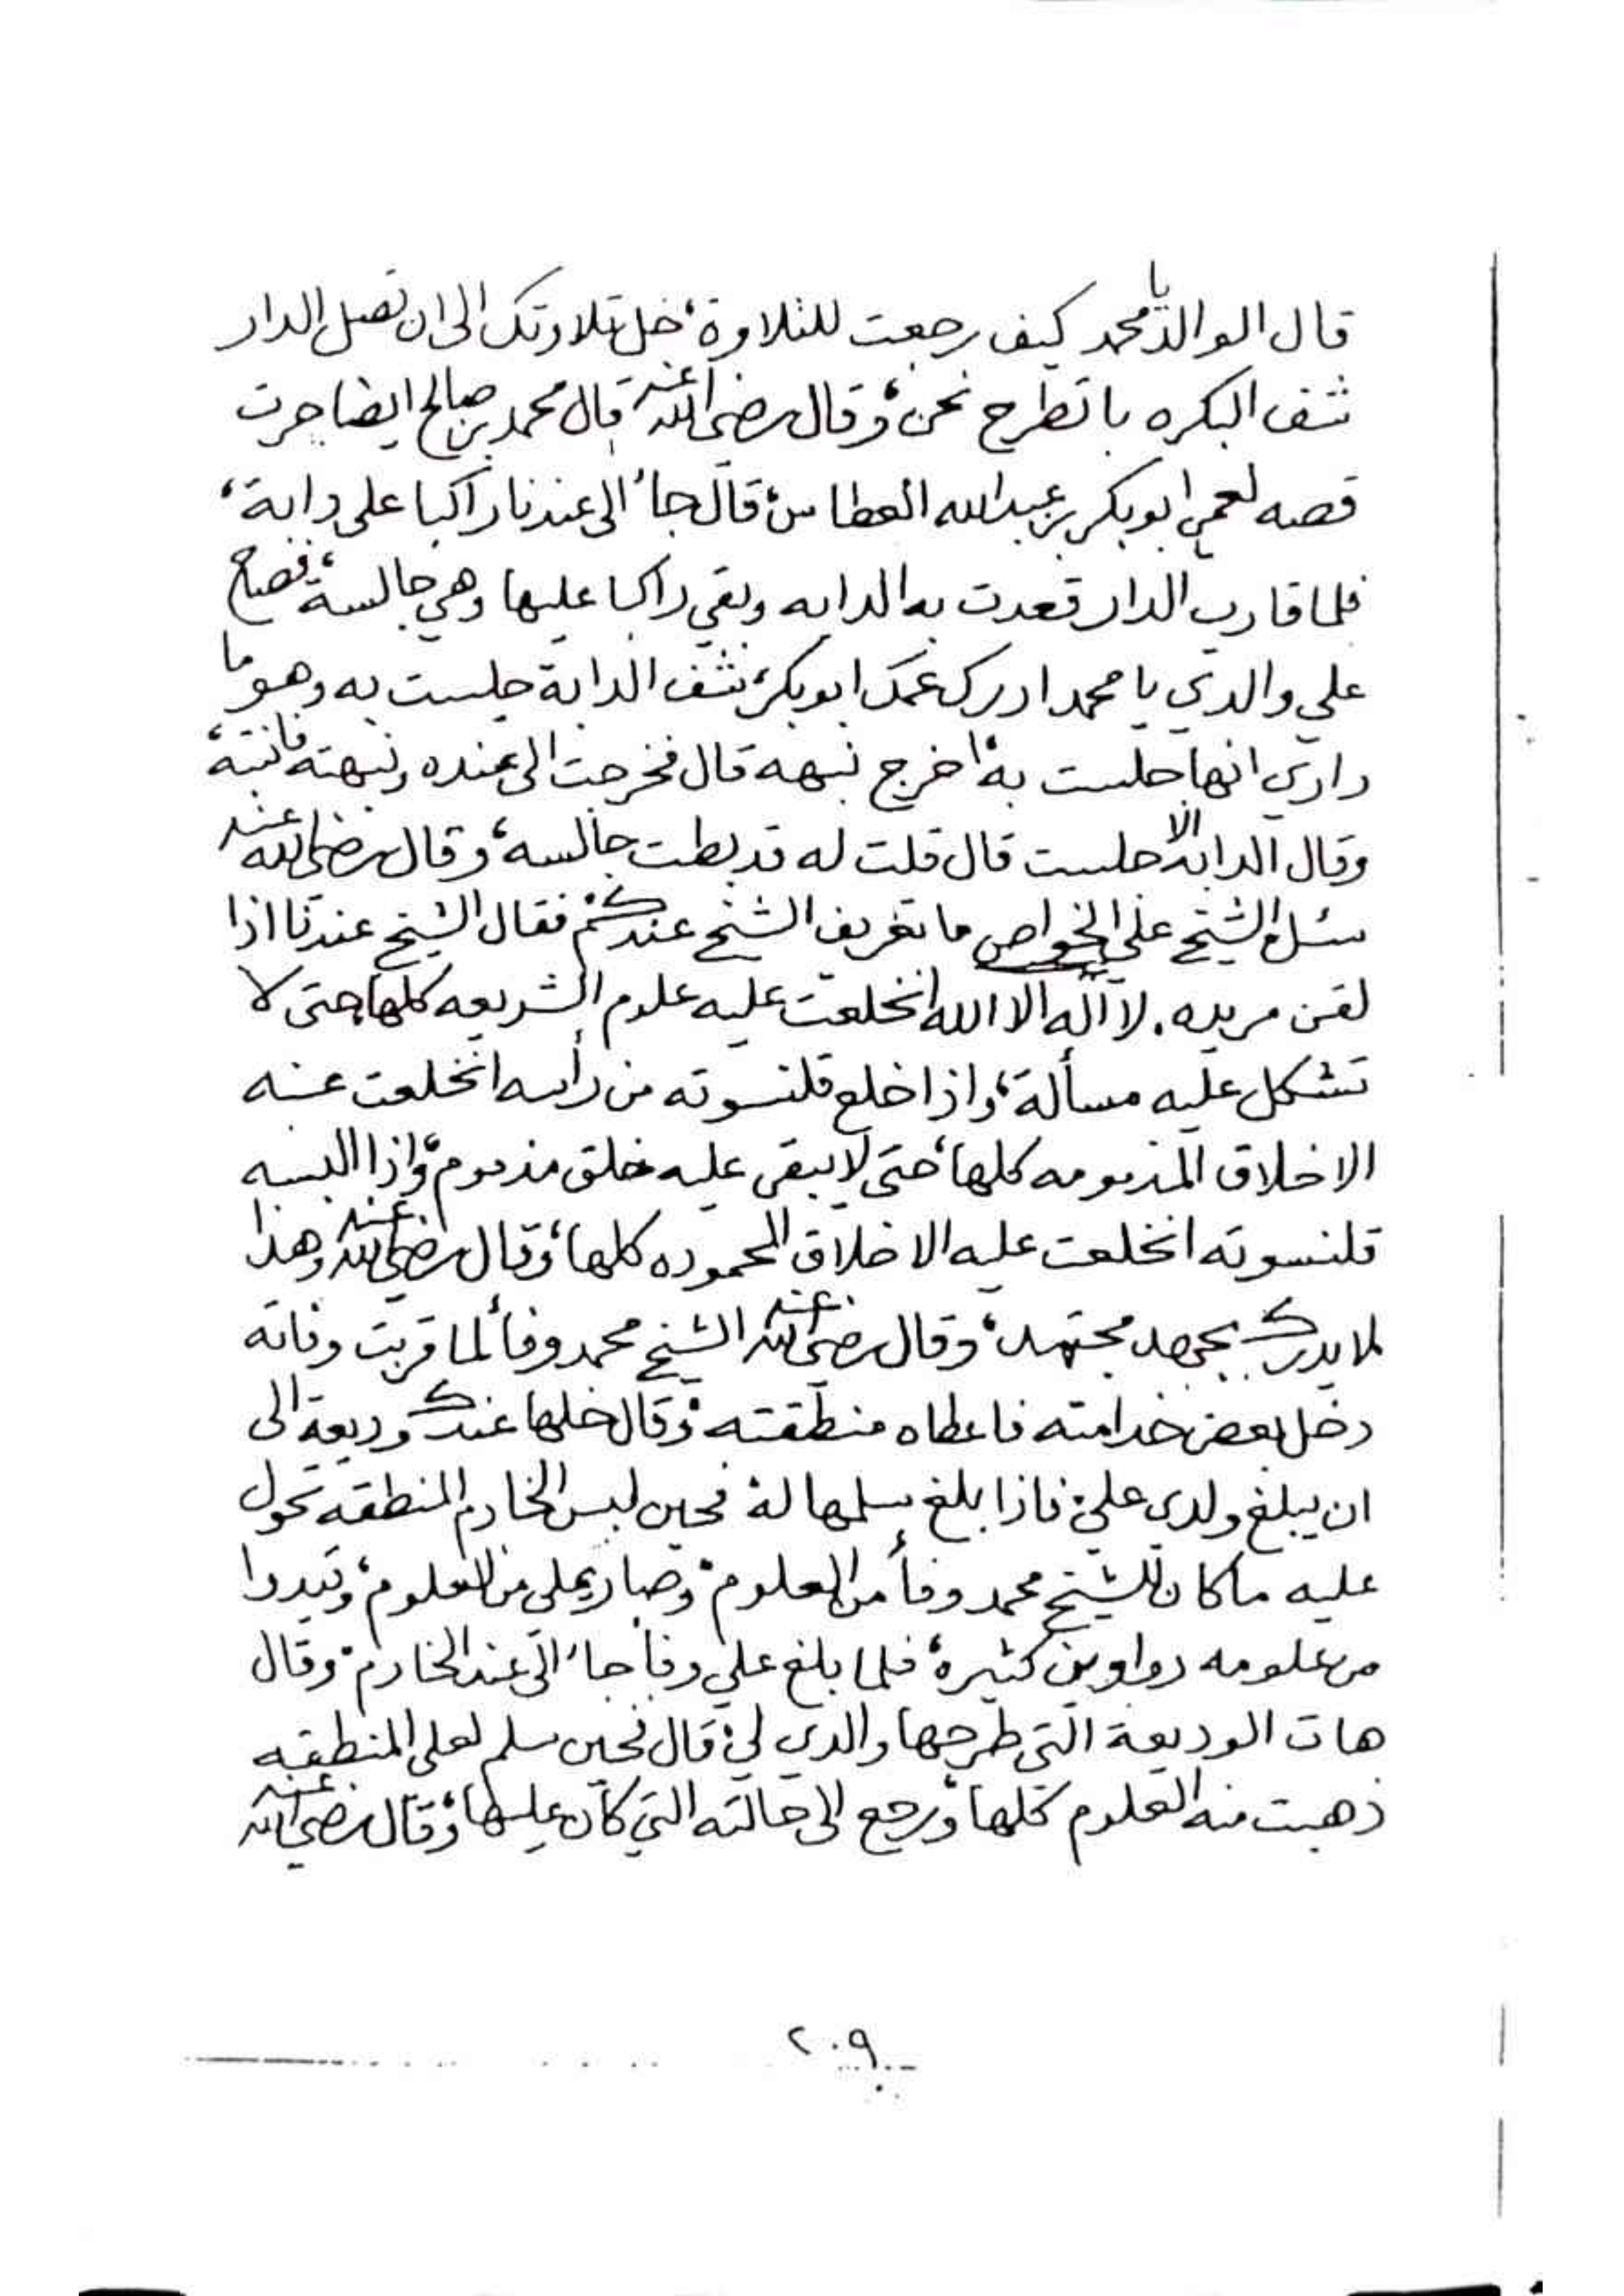 قال الوالد يا محمد كيف رجعت للتلاوة، خل تلاوتك الى ان تصل الدار
شف البكره با تطرح نحن، وقال رضي الله عنه قال محمد بن صالح ايضا جرت
قصه لعمي ابو بكر بن عبدالله العطاس، قال جاء الى عندنا راكبا على دابة،
فلما قارب الدار قعدت به الدابه وبقي راكبا عليها وهي جالسة، فصاح
علي والدي يا محمد ادرك عمك ابو بكر، شف الدابة جلست به وهو ما
داري انها جلست به، اخرج نبهه قال فخرجت الى عنده ونبهته فانتبه،
وقال الدابه الا جلست قال قلت له قد بطت جالسه، وقال رضي الله عنه
سئل الشيخ علي الخواص ما تعريف الشيخ عندكم، فقال الشيخ عندنا اذا
لقن مريده. لا اله الا الله انخلعت عليه علوم الشريعه كلها، حتى لا
تشكل عليه مسألة، واذا خلع قلنسوته من رأسه انخلعت عنه
الاخلاق المذمومه كلها، حتى لا يبقى عليه خلق مذموم، واذا البسه
قلنسوته انخلعت عليه الاخلاق المحموده كلها، وقال رضي الله عنه وهذا
لا يدرك بجهد مجتهد، وقال رضي الله عنه الشيخ محمد وفأ لما قربت وفاته
دخل بعض خدامته فاعطاه منطقته، وقال خلها عندك وديعة الى
ان يبلغ ولدي علي، فاذا بلغ سلمها له، فحين لبس الخادم المنطقه تحول
عليه ما كان للشيخ محمد وفأ من العلوم، وصار يملي من العلوم، وقيدوا
من علومه دواوين كثيرة، فلما بلغ علي وفأ جاء الى عند الخادم، وقال
هات الوديعة التي طرحها والدي لي، قال فحين سلم لعلي المنطقه
ذهبت منه العلوم كلها، ورجع الى حالته التي كان عليها، وقال رضي الله عنه
٢٠٩